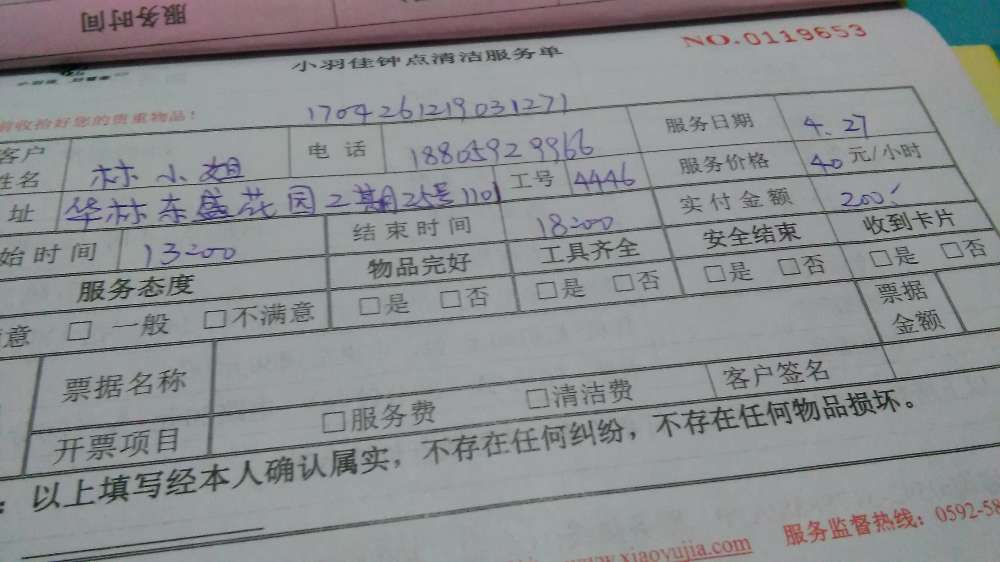 服务时间
NO.0119653
小羽佳钟点清洁服务单
前收拾好您的贵重物品!
1704261219031271
客户姓名 林小姐 电话 18805929966 服务日期 4.27
址 华林东盛花园2期25号1101 工号 4446 服务价格 40元/小时
始时间 13:00 结束时间 18:00 实付金额 200
服务态度 物品完好 工具齐全 安全结束 收到卡片
意 □ 一般 □不满意 □是 □否 □是 □否 □是 □否 □是 □否
票据名称 票据金额
开票项目 □服务费 □清洁费 客户签名
：以上填写经本人确认属实，不存在任何纠纷，不存在任何物品损坏。
服务监督热线：0592-58
www.xiaoyujia.com